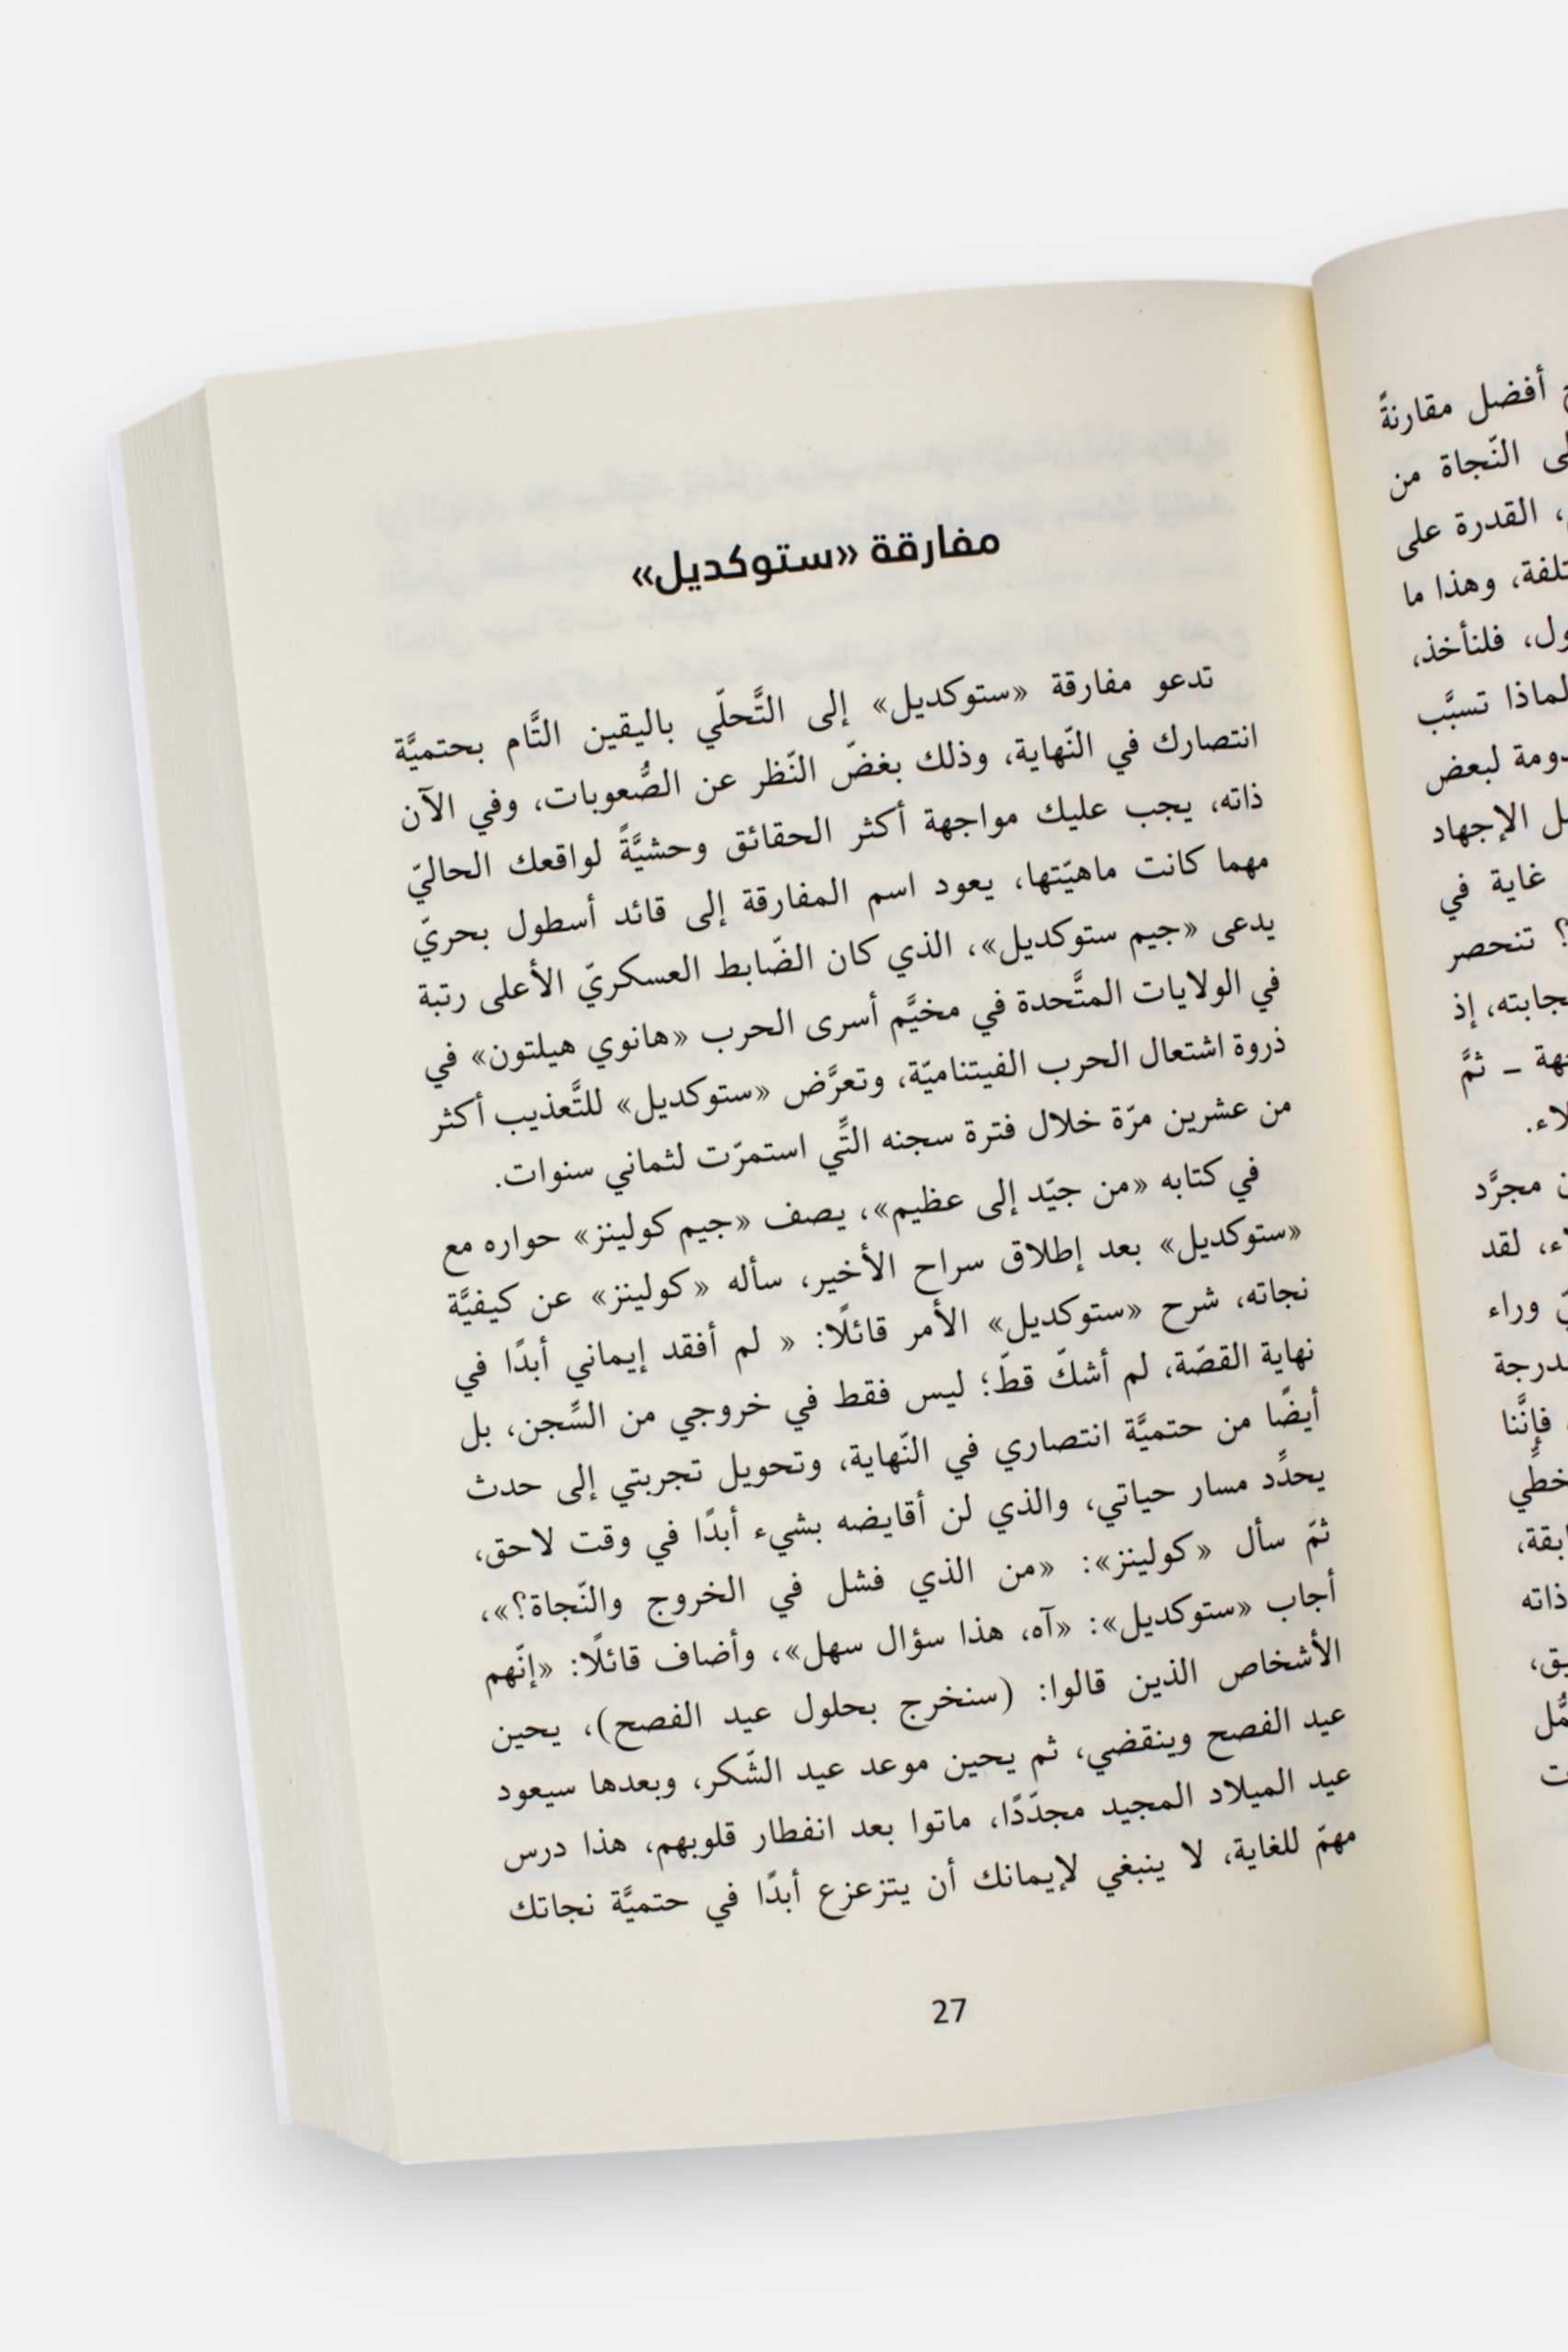 مفارقة «ستوكديل»
تدعو مفارقة «ستوكديل» إلى التَّحلّي باليقين التَّام بحتميَّة
انتصارك في النّهاية، وذلك بغضّ النّظر عن الصُّعوبات، وفي الآن
ذاته، يجب عليك مواجهة أكثر الحقائق وحشيَّةً لواقعك الحاليّ
مهما كانت ماهيّتها، يعود اسم المفارقة إلى قائد أسطول بحريّ
يدعى «جيم ستوكديل»، الذي كان الضّابط العسكريّ الأعلى رتبة
في الولايات المتَّحدة في مخيَّم أسرى الحرب «هانوي هيلتون» في
ذروة اشتعال الحرب الفيتناميّة، وتعرَّض «ستوكديل» للتَّعذيب أكثر
من عشرين مرّة خلال فترة سجنه التِّي استمرّت لثماني سنوات.
في كتابه «من جيّد إلى عظيم»، يصف «جيم كولينز» حواره مع
«ستوكديل» بعد إطلاق سراح الأخير، سأله «كولينز» عن كيفيَّة
نجاته، شرح «ستوكديل» الأمر قائلًا: « لم أفقد إيماني أبدًا في
نهاية القصّة، لم أشكّ قطّ؛ ليس فقط في خروجي من السِّجن، بل
أيضًا من حتميَّة انتصاري في النّهاية، وتحويل تجربتي إلى حدث
يحدِّد مسار حياتي، والذي لن أقايضه بشيء أبدًا في وقت لاحق،
ثمّ سأل «كولينز»: «من الذي فشل في الخروج والنّجاة؟»،
أجاب «ستوكديل»: «آه، هذا سؤال سهل»، وأضاف قائلًا: «إنّهم
الأشخاص الذين قالوا: (سنخرج بحلول عيد الفصح)، يحين
عيد الفصح وينقضي، ثم يحين موعد عيد الشّكر، وبعدها سيعود
عيد الميلاد المجيد مجدّدًا، ماتوا بعد انفطار قلوبهم، هذا درس
مهمّ للغاية، لا ينبغي لإيمانك أن يتزعزع أبدًا في حتميَّة نجاتك
27
أفضل مقارنةً
النّجاة من
القدرة على
وهذا ما
فلنأخذ،
لماذا تسبَّب
لبعض
الإجهاد
غاية في
؟ تنحصر
إذ
ـ ثمَّ
مجرَّد
لقد
وراء
فإنَّنا
ذاته